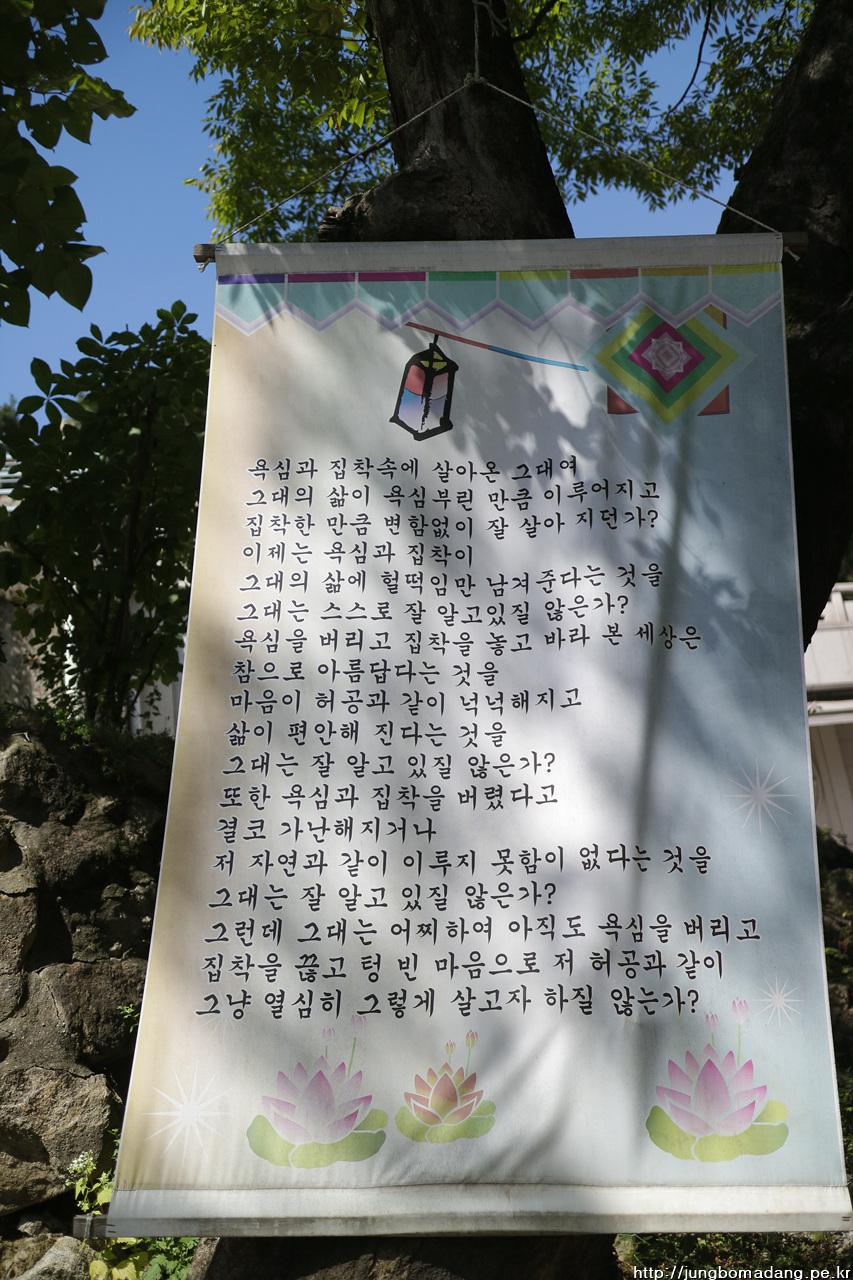 욕심과 집착속에 살아온 그대여
그대의 삶이 욕심부린 만큼 이루어지고
집착한 만큼 변함없이 잘 살아 지던가?
이제는 욕심과 집착이
그대의 삶에 헐떡임만 남겨준다는 것을
그대는 스스로 잘 알고있질 않은가?
욕심을 버리고 집착을 놓고 바라 본 세상은
참으로 아름답다는 것을
마음이 허공과 같이 넉넉해지고
삶이 편안해 진다는 것을
그대는 잘 알고 있질 않은가?
또한 욕심과 집착을 버렸다고
결코 가난해지거나
저 자연과 같이 이루지 못함이 없다는 것을
그대는 잘 알고 있질 않은가?
그런데 그대는 어찌하여 아직도 욕심을 버리고
집착을 끊고 텅 빈 마음으로 저 허공과 같이
그냥 열심히 그렇게 살고자 하질 않는가?
http://jungbomadang.pe.kr